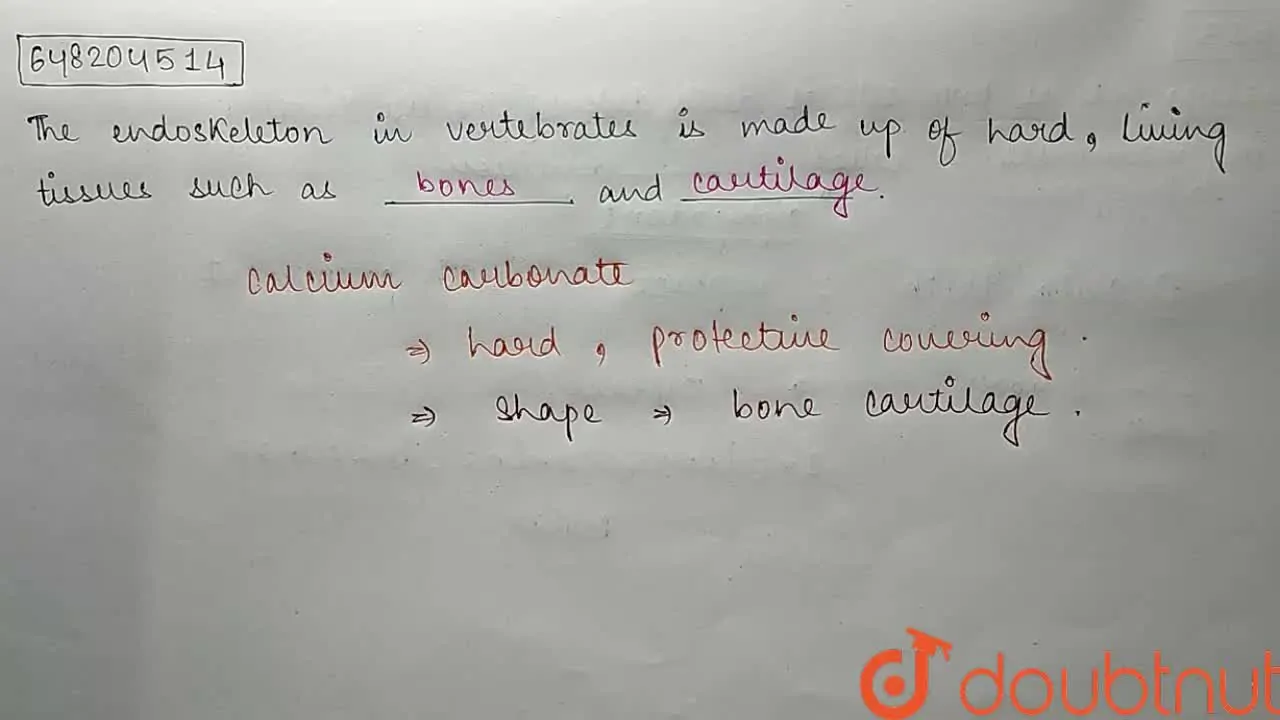 648204514
The endoskeleton in vertebrates is made up of hard, living
tissues such as bones and cartilage.
calcium carbonate
⇒ hard, protective covering.
⇒ shape ⇒ bone cartilage.
doubtnut